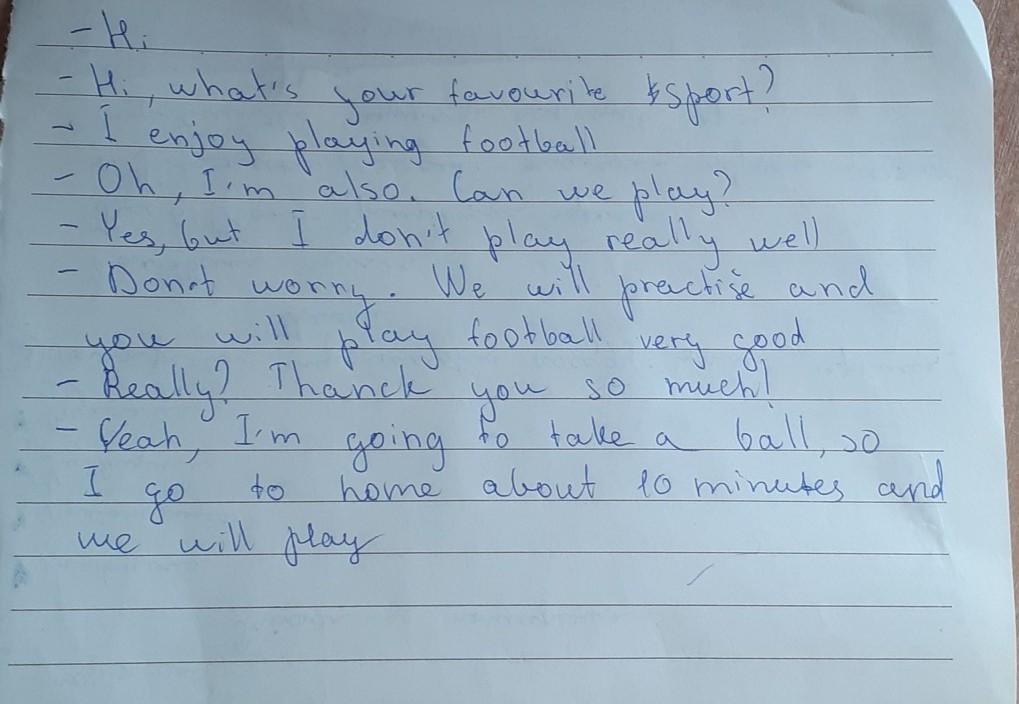 - Hi
- Hi, what's your favourite sport?
- I enjoy playing football
- Oh, I'm also. Can we play?
- Yes, but I don't play really well
- Donot worry. We will practise and
you will play football very good
- Really? Thanck you so much!
- Yeah, I'm going to take a ball, so
I go to home about 10 minutes and
we will play